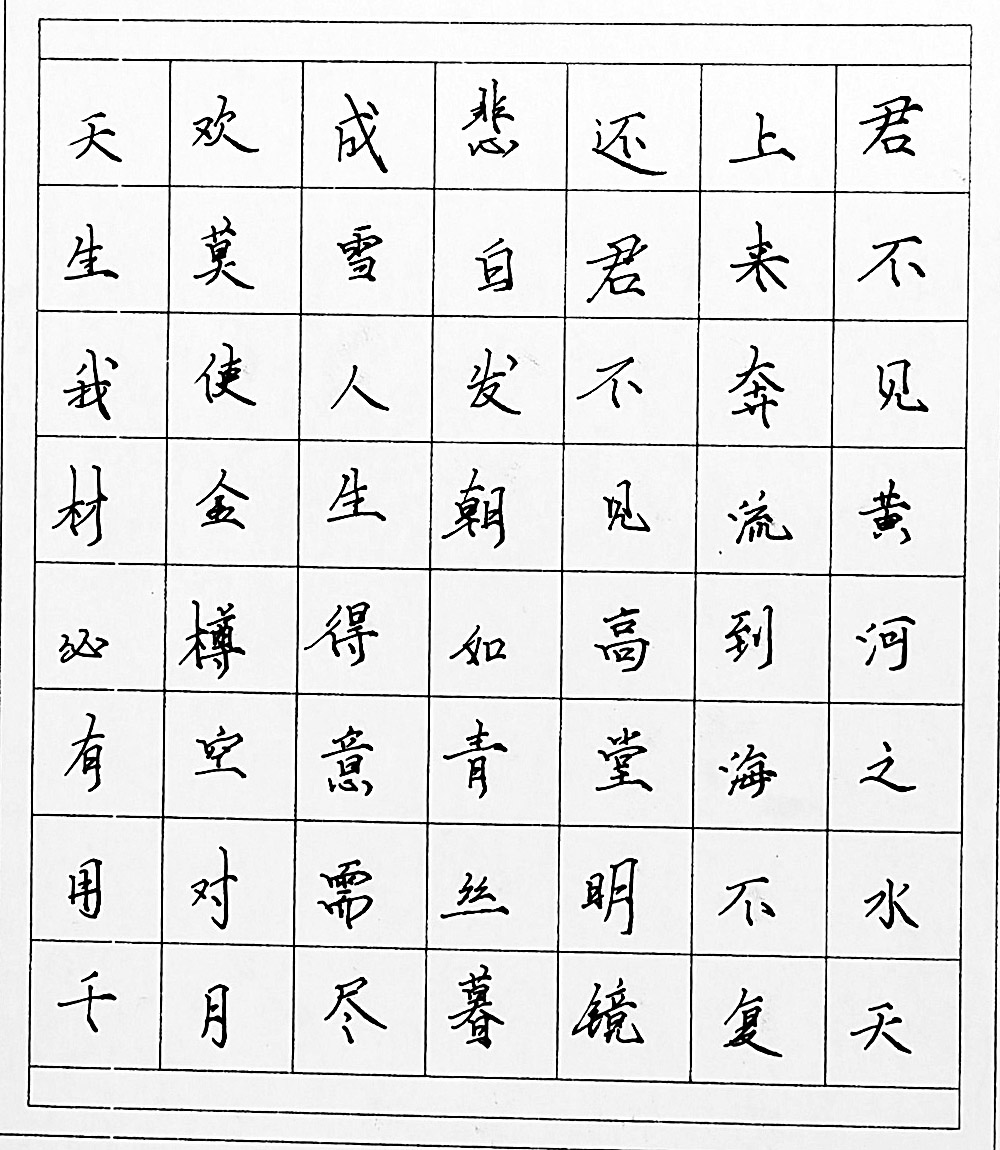 君不见黄河之水天
上来奔流到海不复
还君不见高堂明镜
悲白发朝如青丝暮
成雪人生得意需尽
欢莫使金樽空对月
天生我材必有用千